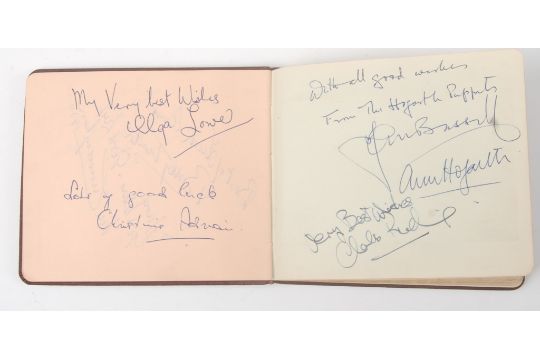 My Very best Wishes
Olga Lowe
Lots of good luck
Christine Adrian
With all good wishes
From The Hogarth Puppets
Jan Bussell
Ann Hogarth
Very Best Wishes